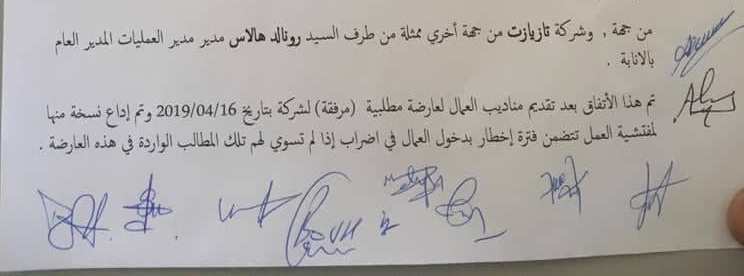 من جهة , وشركة تازيازت من جهة أخري ممثلة من طرف السيد رونالد هالاس مدير مدير العمليات المدير العام
بالانابة .
تم هذا الأتفاق بعد تقديم مناديب العمال لعارضة مطلبية (مرفقة) لشركة بتاريخ 2019/04/16 وتم إداع نسخة منها
لمفتشية العمل تتضمن فترة إخطار بدخول العمال في اضراب إذا لم تسوي لهم تلك المطالب الواردة في هذه العارضة .